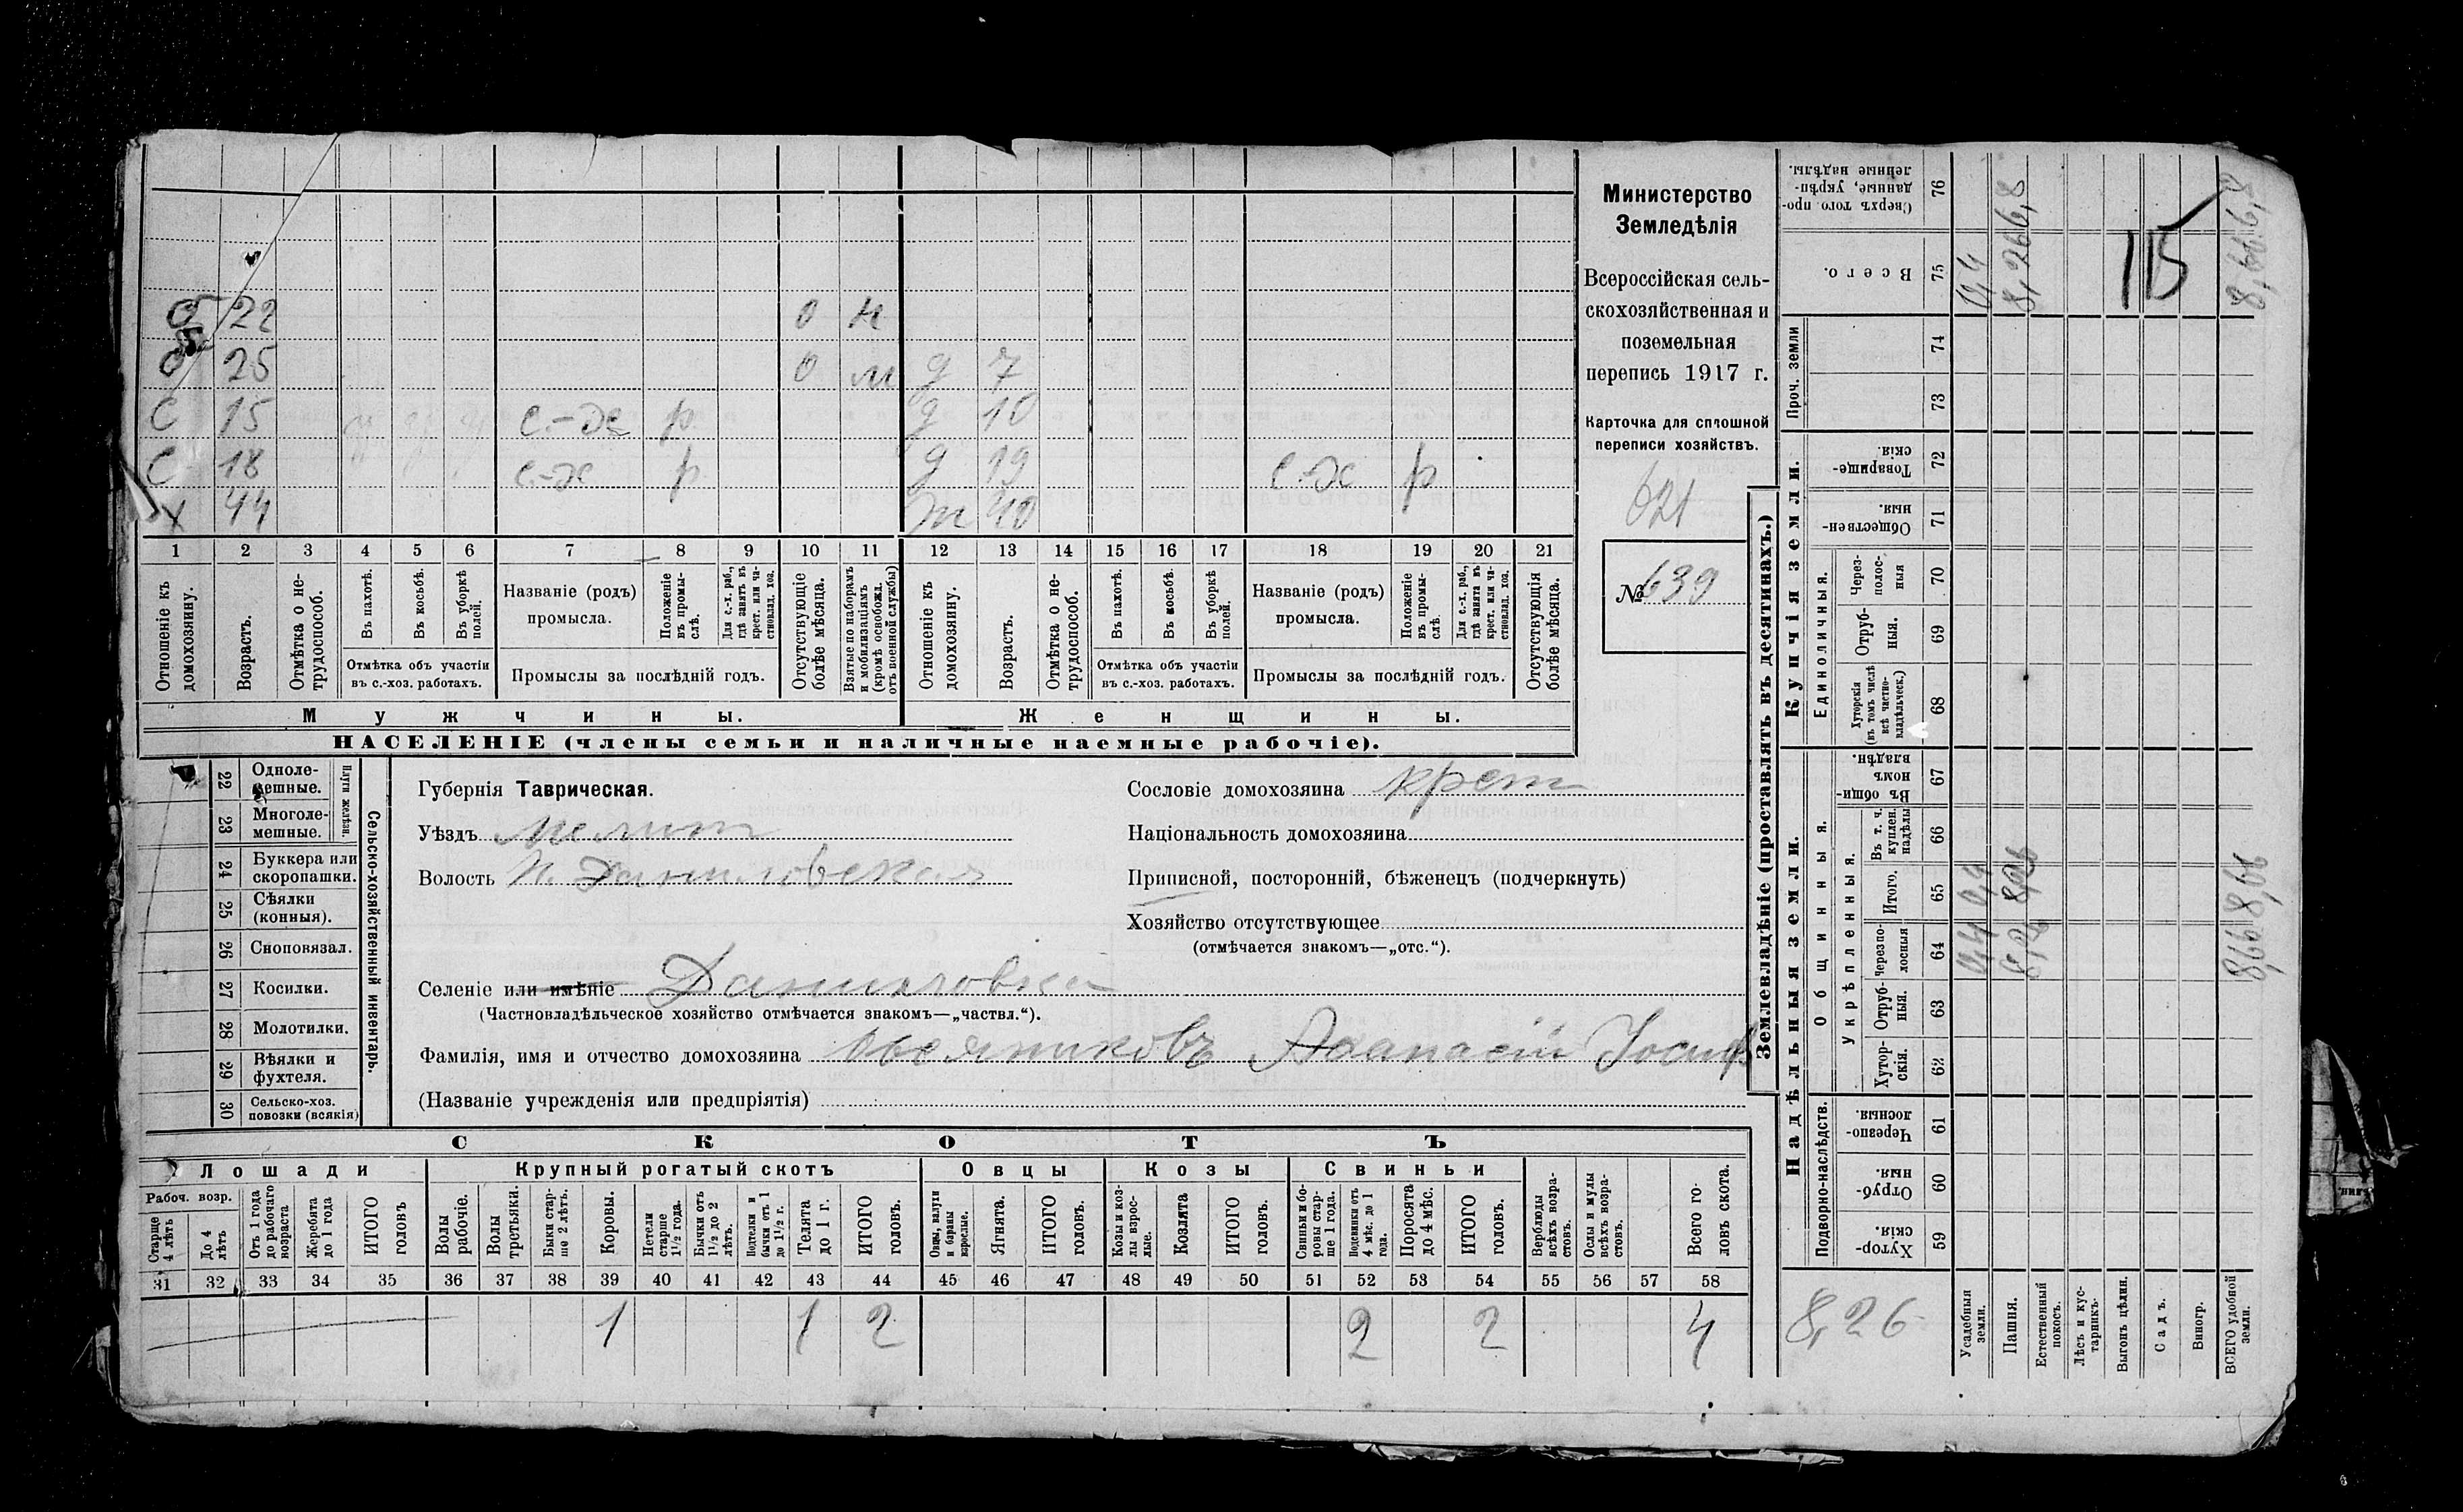 О 22 0 н
О 25 0 м д 7
С 15 с.-х р д 10
С 18 с.-х р д 19 с-х р
Х 44 ж 40
1 2 3 4 5 6 7 8 9 10 11 12 13 14 15 16 17 18 19 20 21
Отношеніе къ домохозяину.
Возрастъ.
Отмѣтка о не-
трудоспособ.
Въ пахотѣ.
Въ косьбѣ.
Въ уборкѣ полей.
Отмѣтка объ участіи
въ с.-хоз. работахъ.
Названіе (родъ)
промысла.
Положеніе въ промы-
слѣ.
Для с.-х. раб., гдѣ занятъ въ крест. или ча-
стновлад. хоз.
Промыслы за послѣдній годъ.
Отсутствующіе болѣе мѣсяца.
Взятые по наборамъ и мобилизаціямъ (кромѣ освобожд. отъ военной службы)
Отношеніе къ домохозяину.
Возрастъ.
Отмѣтка о не-
трудоспособ.
Въ пахотѣ.
Въ косьбѣ.
Въ уборкѣ полей.
Отмѣтка объ участіи
въ с.-хоз. работахъ.
Названіе (родъ)
промысла.
Положеніе въ промы-
слѣ.
Для с.-х. раб., гдѣ занята въ крест. или ча-
стновлад. хоз.
Промыслы за послѣдній годъ.
Отсутствующія болѣе мѣсяца.
Мужчины.
Женщины.
НАСЕЛЕНІЕ (члены семьи и наличные наемные рабочіе).
Министерство
Земледѣлія
Всероссійская сель-
скохозяйственная и
поземельная
перепись 1917 г.
Карточка для сплошной
переписи хозяйствъ.
621
№ 639
22 Одноле-
мешные.
23 Многоле-
мешные.
Плуги желѣзн.
24 Буккера или
скоропашки.
25 Сѣялки
(конныя).
26 Сноповязал.
27 Косилки.
28 Молотилки.
29 Вѣялки и
фухтеля.
30 Сельско-хоз.
повозки (всякія)
Сельско-хозяйственный инвентарь.
Губернія Таврическая.
Уѣздъ Мелит
Волость Н. Даниловская
Сословіе домохозяина крест
Національность домохозяина
Приписной, посторонній, бѣженецъ (подчеркнуть)
Хозяйство отсутствующее
(отмѣчается знакомъ—„отс.“).
Селеніе или имѣніе Даниловка
(Частновладѣльческое хозяйство отмѣчается знакомъ—„частвл.“).
Фамилія, имя и отчество домохозяина Овсянниковъ Афанасій Іосиф
(Названіе учрежденія или предпріятія)
СКОТЪ
Лошади
Крупный рогатый скотъ
Овцы
Козы
Свиньи
Рабоч. возр.
Старше 4 лѣтъ
До 4 лѣтъ
Отъ 1 года до рабочаго возраста
Жеребята до 1 года
ИТОГО головъ
Волы рабочіе.
Волы третьяки.
Быки стар-
ше 2 лѣтъ.
Коровы.
Нетели старше 1½ года.
Бычки отъ 1½ до 2 лѣтъ.
Подтелки и бычки отъ 1 до 1½ г.
Телята до 1 г.
ИТОГО головъ.
Овцы, валухи и бараны взрослые.
Ягнята.
ИТОГО головъ.
Козы и коз-
лы взрос-
лые.
Козлята
ИТОГО головъ.
Свиньи и бо-
ровы стар-
ше 1 года.
Подсвинки отъ 4 мѣс. до 1 года.
Поросята до 4 мѣс.
ИТОГО головъ.
Верблюды всѣхъ возра-
стовъ.
Ослы и мулы всѣхъ возра-
стовъ.
Всего го-
ловъ скота.
31 32 33 34 35 36 37 38 39 40 41 42 43 44 45 46 47 48 49 50 51 52 53 54 55 56 57 58
1 1 2 2 2 4
Землевладѣніе (проставлять въ десятинахъ.)
Надѣльныя земли.
Купчія земли.
Проч. земли
Подворно-наслѣдств.
Общинныя.
Укрѣпленныя.
Единоличныя.
Хутор-
скія. 59
Отруб-
ныя. 60
Черезпо-
лосныя. 61
Хутор-
скія. 62
Отруб-
ныя. 63
Черезпо-
лосныя 64
Итого. 65
Въ т. ч. куплен. надѣлы 66
Въ общин-
номъ владѣн. 67
Хуторскія (въ томъ числѣ всѣ частно-
владѣльческ.) 68
Отруб-
ныя. 69
Через-
полос-
ныя 70
Обществен-
ныя. 71
Товарище-
скія. 72
73
74
Всего. 75
Сверхъ того про-
данные, укрѣп-
ленные надѣлы. 76
8,26
Усадебныя земли. 0,4 0,4 0,4
Пашня. 8,26 8,26 8,266,8
Естественный покосъ.
Лѣсъ и кус-
тарникъ.
Выгонъ цѣлин.
Садъ.
Виногр.
ВСЕГО удобной земли. 8,66 8,66 8,666,8
15